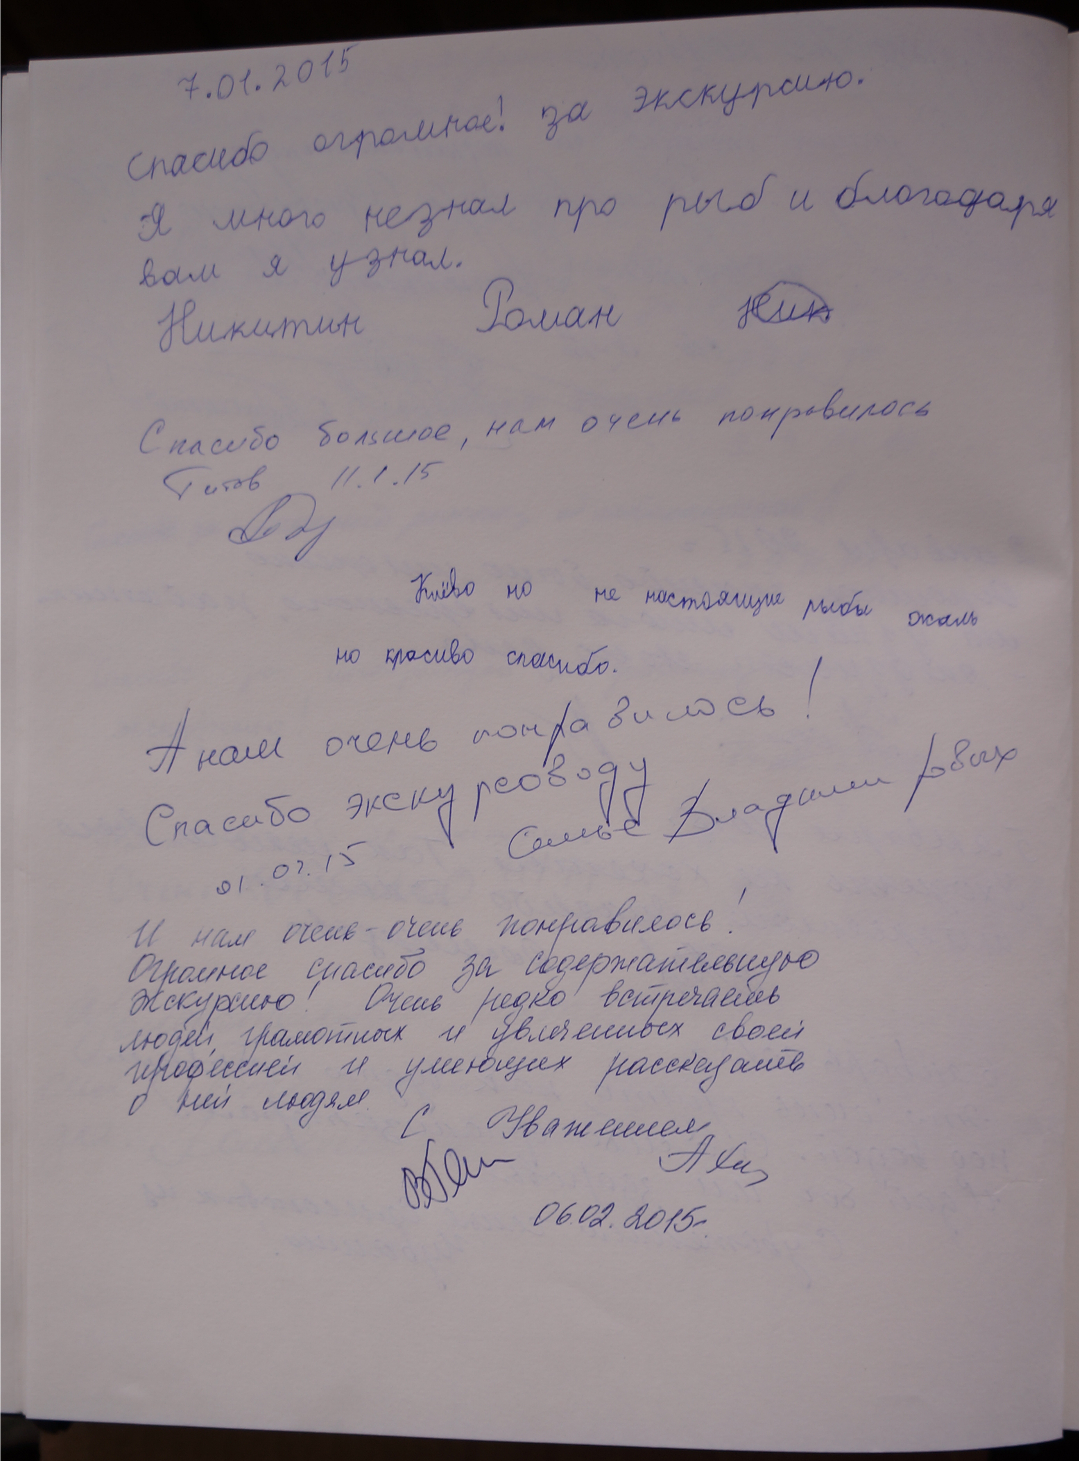 7.01.2015
Спасибо огромное! за экскурсию.
Я много незнал про рыб и благодаря
вам я узнал.
Никитин Роман Ник
Спасибо большое, нам очень понравилось
Титов 11.1.15
но не настоящие рыбы жаль
но красиво спасибо.
А нам очень понравилось!
Спасибо экскурсоводу
Семья Владимировых
01.02.15
И нам очень-очень понравилось!
Огромное спасибо за содержательную
экскурсию! Очень редко встречаешь
людей, грамотных и увлеченных своей
профессией и умеющих рассказать
о ней людям.
С Уважением
06.02.2015г.